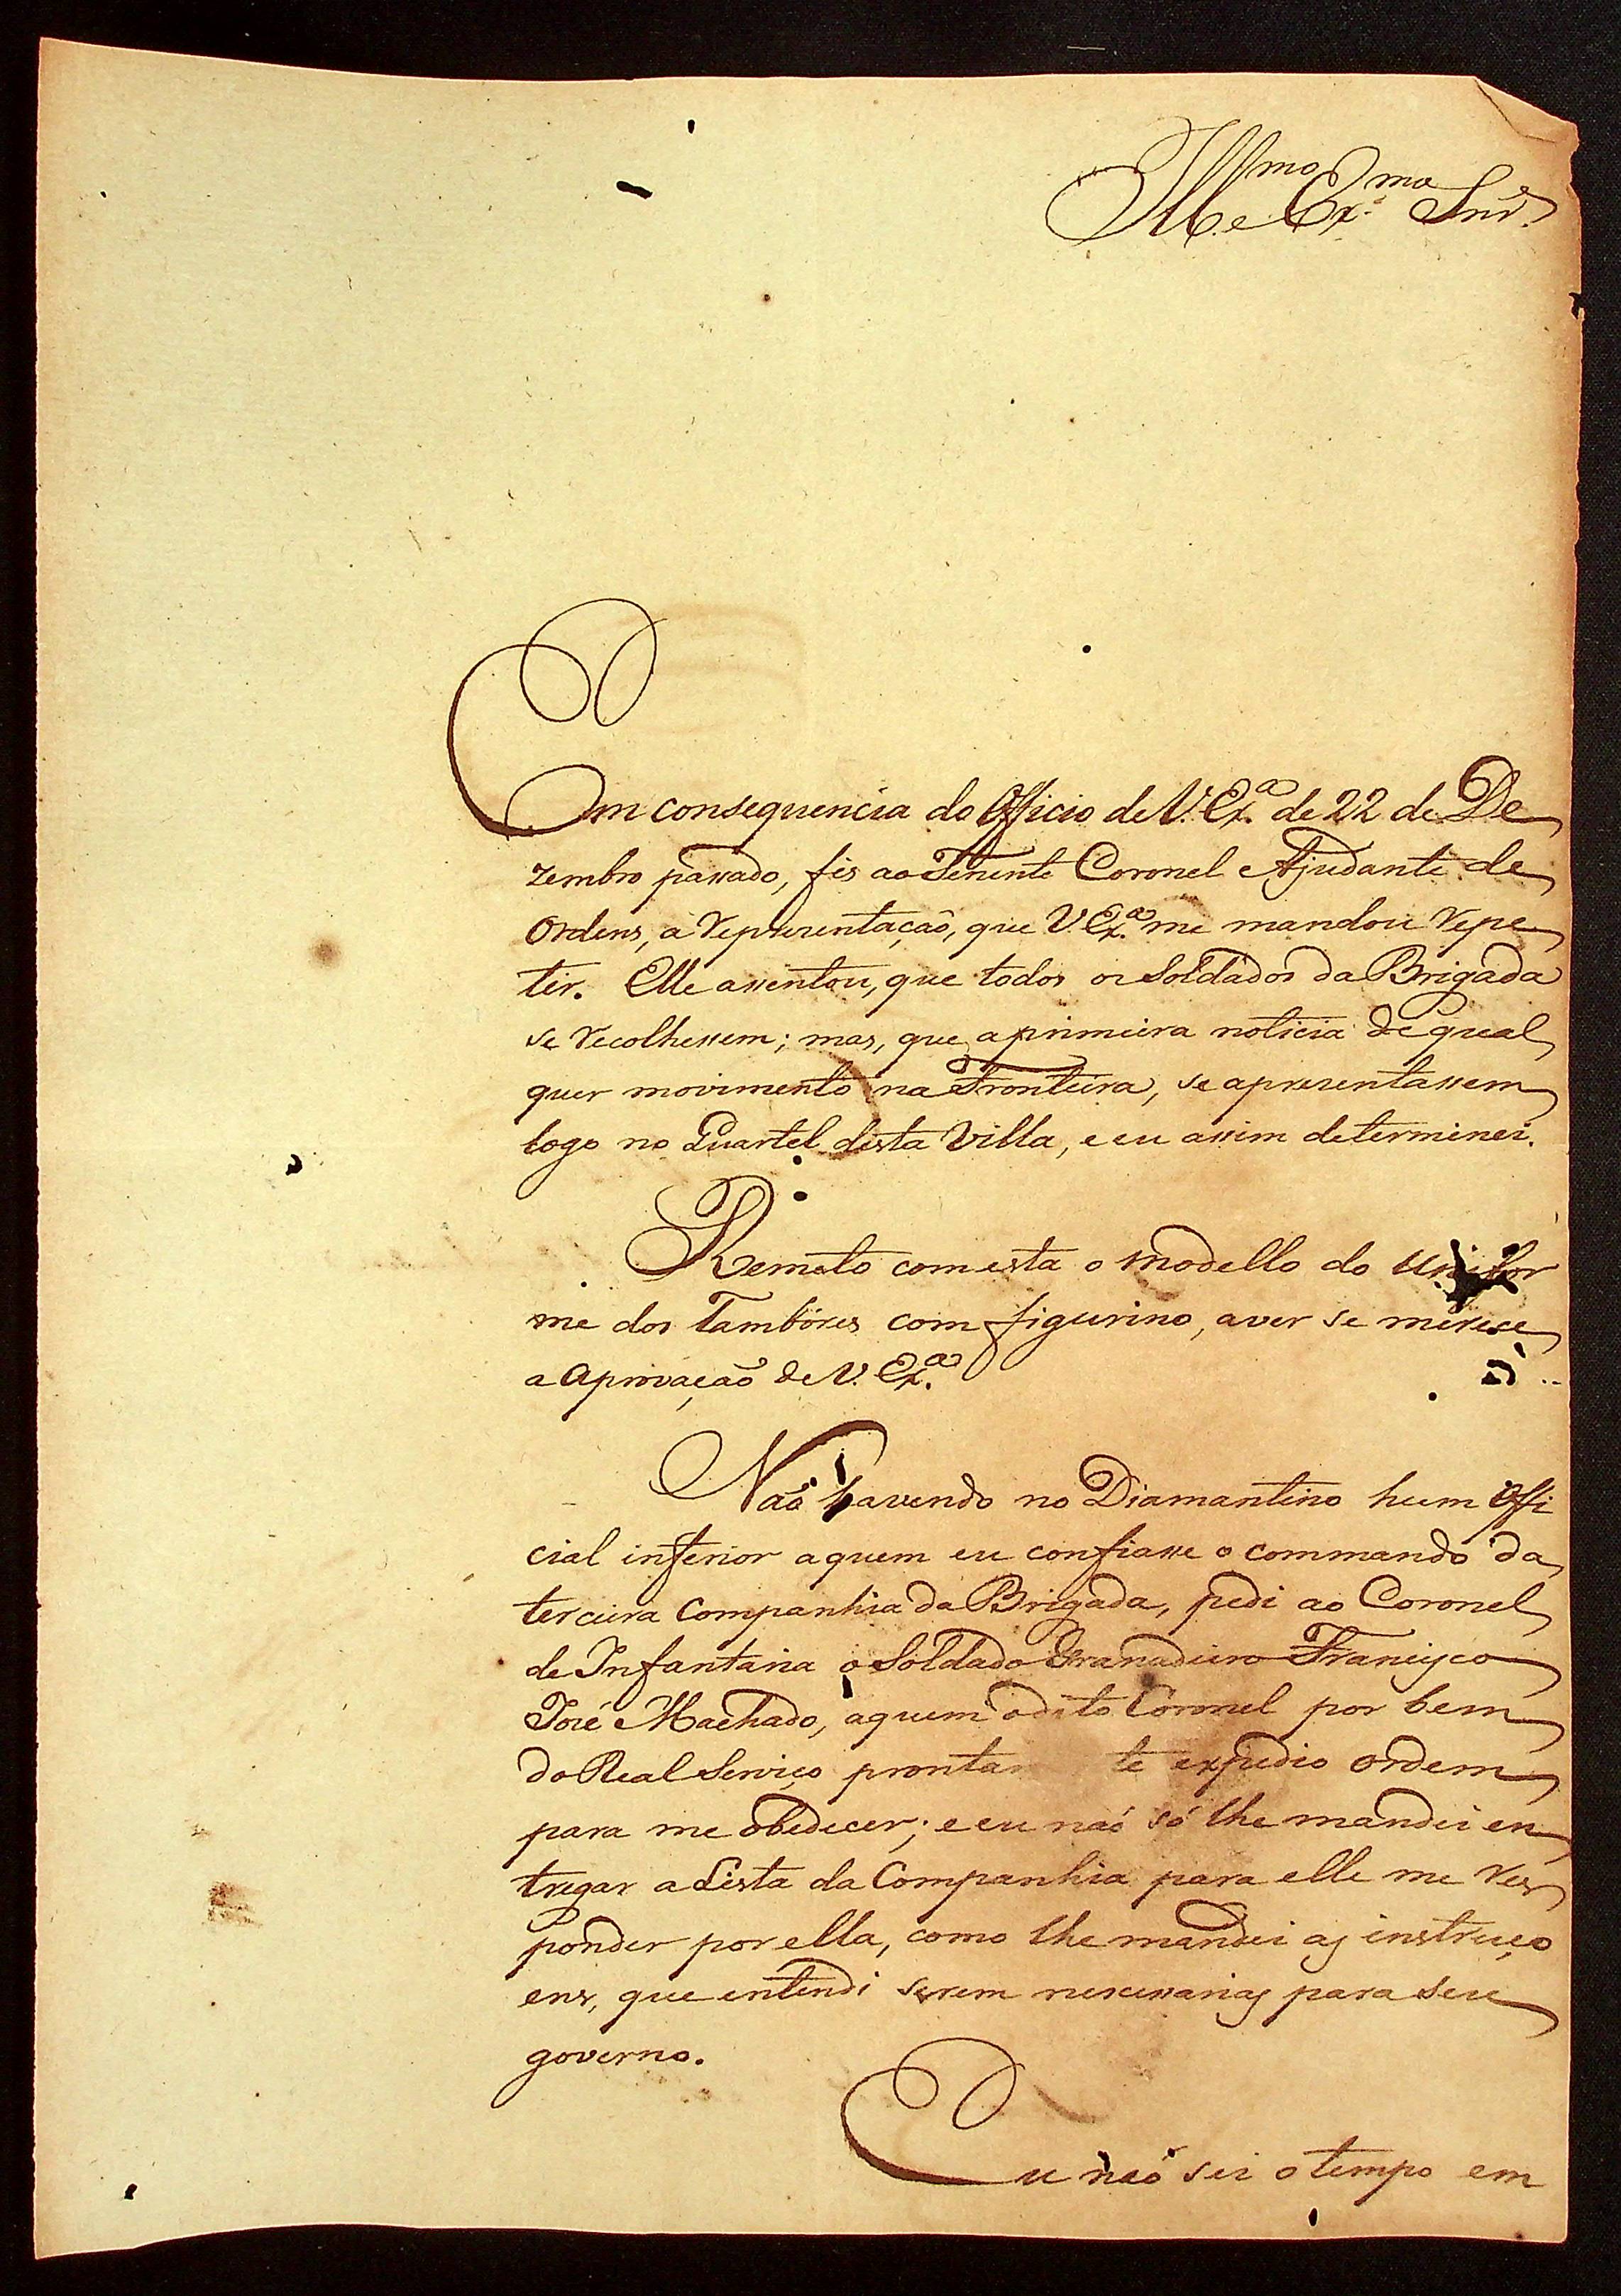 Ill.mo e Ex.mo Snr.
Em consequencia do Officio de V. Ex.a de 22 de De
zembro passado, fis ao Tenente Coronel Ajudante de
Ordens, a representação, que V Ex.a me mandou repe
tir. Elle assentou, que todos os Soldados da Brigada
se recolhessem; mas, que a primeira noticia de qual
quer movimento na Fronteira, se apresentassem
logo no Quartel desta Villa, e eu assim determinei.
Remeto com esta o modello do Unifor
me dos Tambores com figurino, a ver se merece
a aprovação de V. Ex.a
Não havendo no Diamantino hum Offi
cial inferior a quem eu confiasse o commando da
terceira Companhia da Brigada, pedi ao Coronel
de Infantaria o Soldado Granadeiro Francisco
José Machado, a quem o dito Coronel por bem
do Real Serviço pronta te expedio ordem
para me obedecer; e eu não só lhe mandei en
tregar a Lista da Companhia para elle me res
ponder por ella, como lhe mandei as instruço
ens, que entendi serem nescessarias para seu
governo.
Eu não sei o tempo em